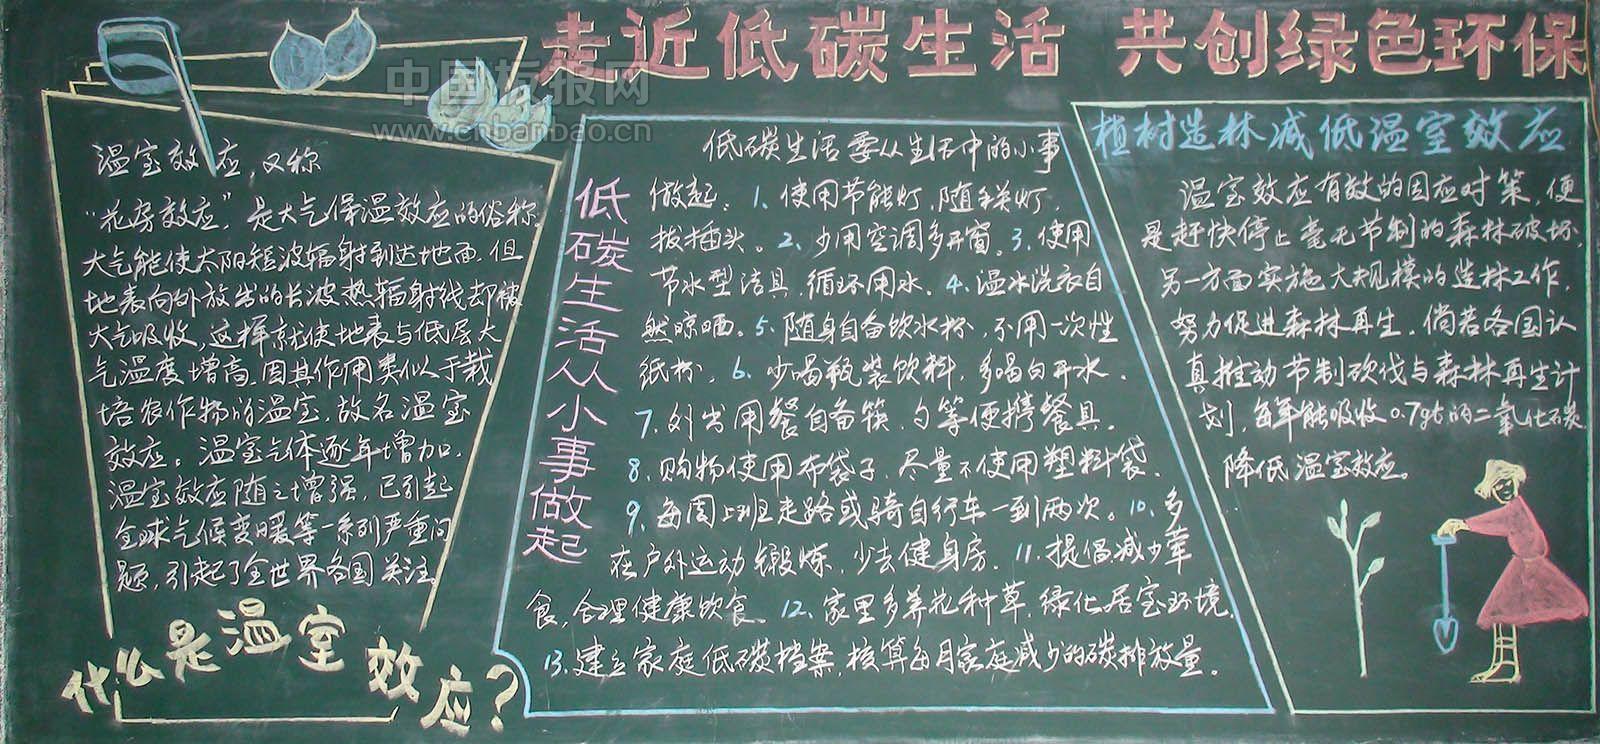 走近低碳生活 共创绿色环保
中国板报网
www.cnbanbao.cn
温室效应,又称
“花房效应”,是大气保温效应的俗称。
大气能使太阳短波辐射到达地面,但
地表向外放出的长波热辐射线却被
大气吸收,这样就使地表与低层大
气温度增高,因其作用类似于栽
培农作物的温室,故名温室
效应。温室气体逐年增加,
温室效应随之增强,已引起
全球气候变暖等一系列严重问
题,引起了全世界各国关注。
什么是温室效应?
低碳生活从小事做起
低碳生活要从生活中的小事
做起:1、使用节能灯,随手关灯,
拔插头。2、少用空调多开窗。3、使用
节水型洁具,循环用水。4、温水洗衣自
然晾晒。5、随身自备饮水杯,不用一次性
纸杯。6、少喝瓶装饮料,多喝白开水。
7、外出用餐自备筷,勺等便携餐具。
8、购物使用布袋子,尽量不使用塑料袋。
9、每周上班走路或骑自行车一到两次。10、多
在户外运动锻炼,少去健身房。11、提倡减少荤
食,合理健康饮食。12、家里多养花种草,绿化居室环境。
13、建立家庭低碳档案,核算每月家庭减少的碳排放量。
植树造林减低温室效应
温室效应有效的因应对策,便
是赶快停止毫无节制的森林破坏,
另一方面实施大规模的造林工作,
努力促进森林再生。倘若各国认
真推动节制砍伐与森林再生计
划,每年能吸收0.7gt的二氧化碳,
降低温室效应。